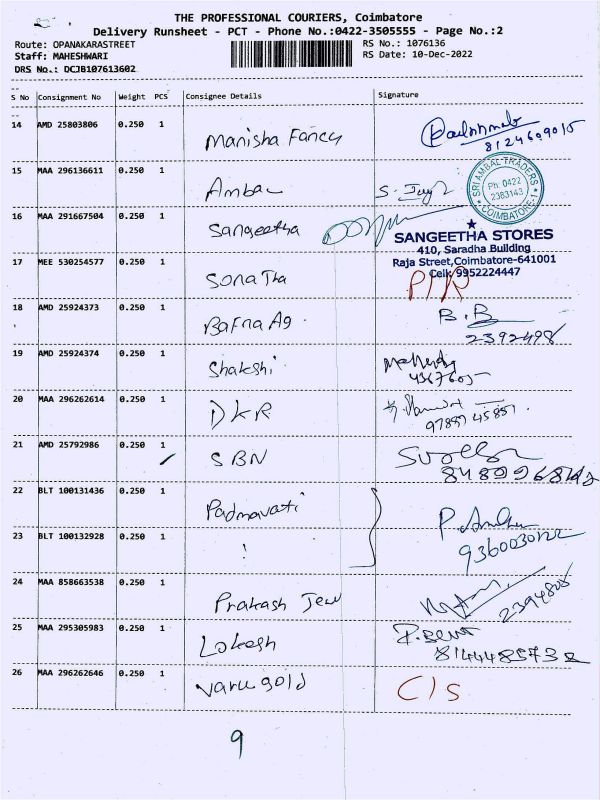 THE PROFESSIONAL COURIERS, Coimbatore
Delivery Runsheet - PCT - Phone No.:0422-3505555 - Page No.:2
Route: OPANAKARASTREET
RS No.: 1076136
Staff: MAHESHWARI
RS Date: 10-Dec-2022
DRS No.: DCJB107613602
S No Consignment No Weight PCS Consignee Details Signature
14 AMD 25803806 0.250 1 Manisha Fancy
8124609015
15 MAA 296136611 0.250 1 Ambal S.
SRI AMBAL TRADERS
Ph: 0422
2383143
COIMBATORE-1
16 MAA 291667504 0.250 1 Sangeetha
SANGEETHA STORES
410, Saradha Building
Raja Street, Coimbatore-641001
Cell: 9952224447
17 MEE 530254577 0.250 1 Sona Tha
18 AMD 25924373 0.250 1 Bafna Ag B.B
2392498
19 AMD 25924374 0.250 1 Shakshi
4367605
20 MAA 296262614 0.250 1 DKR
21 AMD 25792986 0.250 1 SBN
22 BLT 100131436 0.250 1 Padmavati
23 BLT 100132928 0.250 1
24 MAA 858663538 0.250 1 Prakash Jew
25 MAA 295305983 0.250 1 Lokesh
8144485732
26 MAA 296262646 0.250 1 Varu gold C/S
9